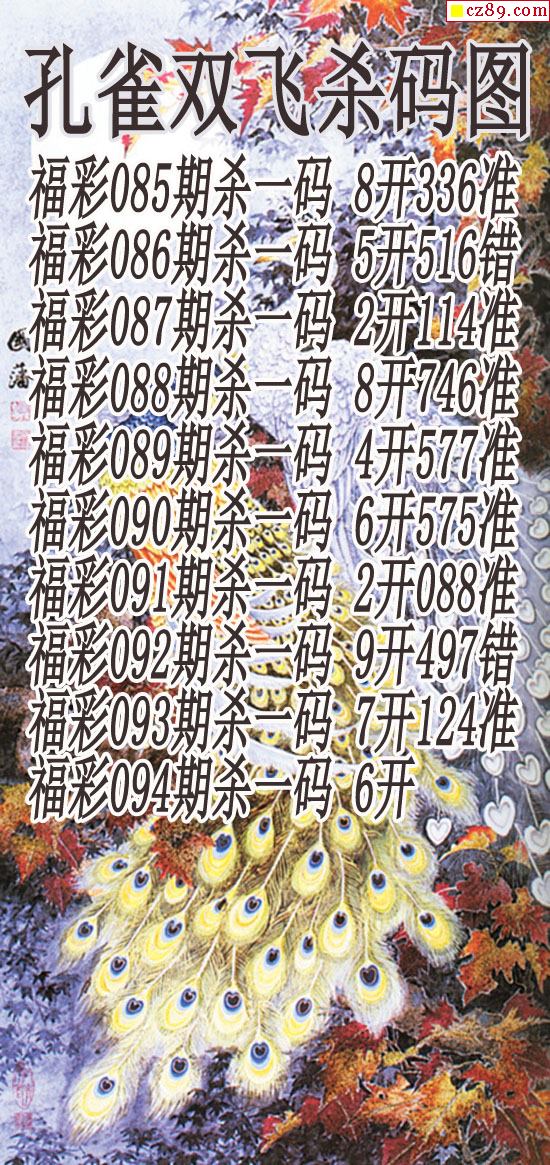 cz89.com
孔雀双飞杀码图
福彩085期杀一码 8开336准
福彩086期杀一码 5开516错
福彩087期杀一码 2开114准
福彩088期杀一码 8开746准
福彩089期杀一码 4开577准
福彩090期杀一码 6开575准
福彩091期杀一码 2开088准
福彩092期杀一码 9开497错
福彩093期杀一码 7开124准
福彩094期杀一码 6开